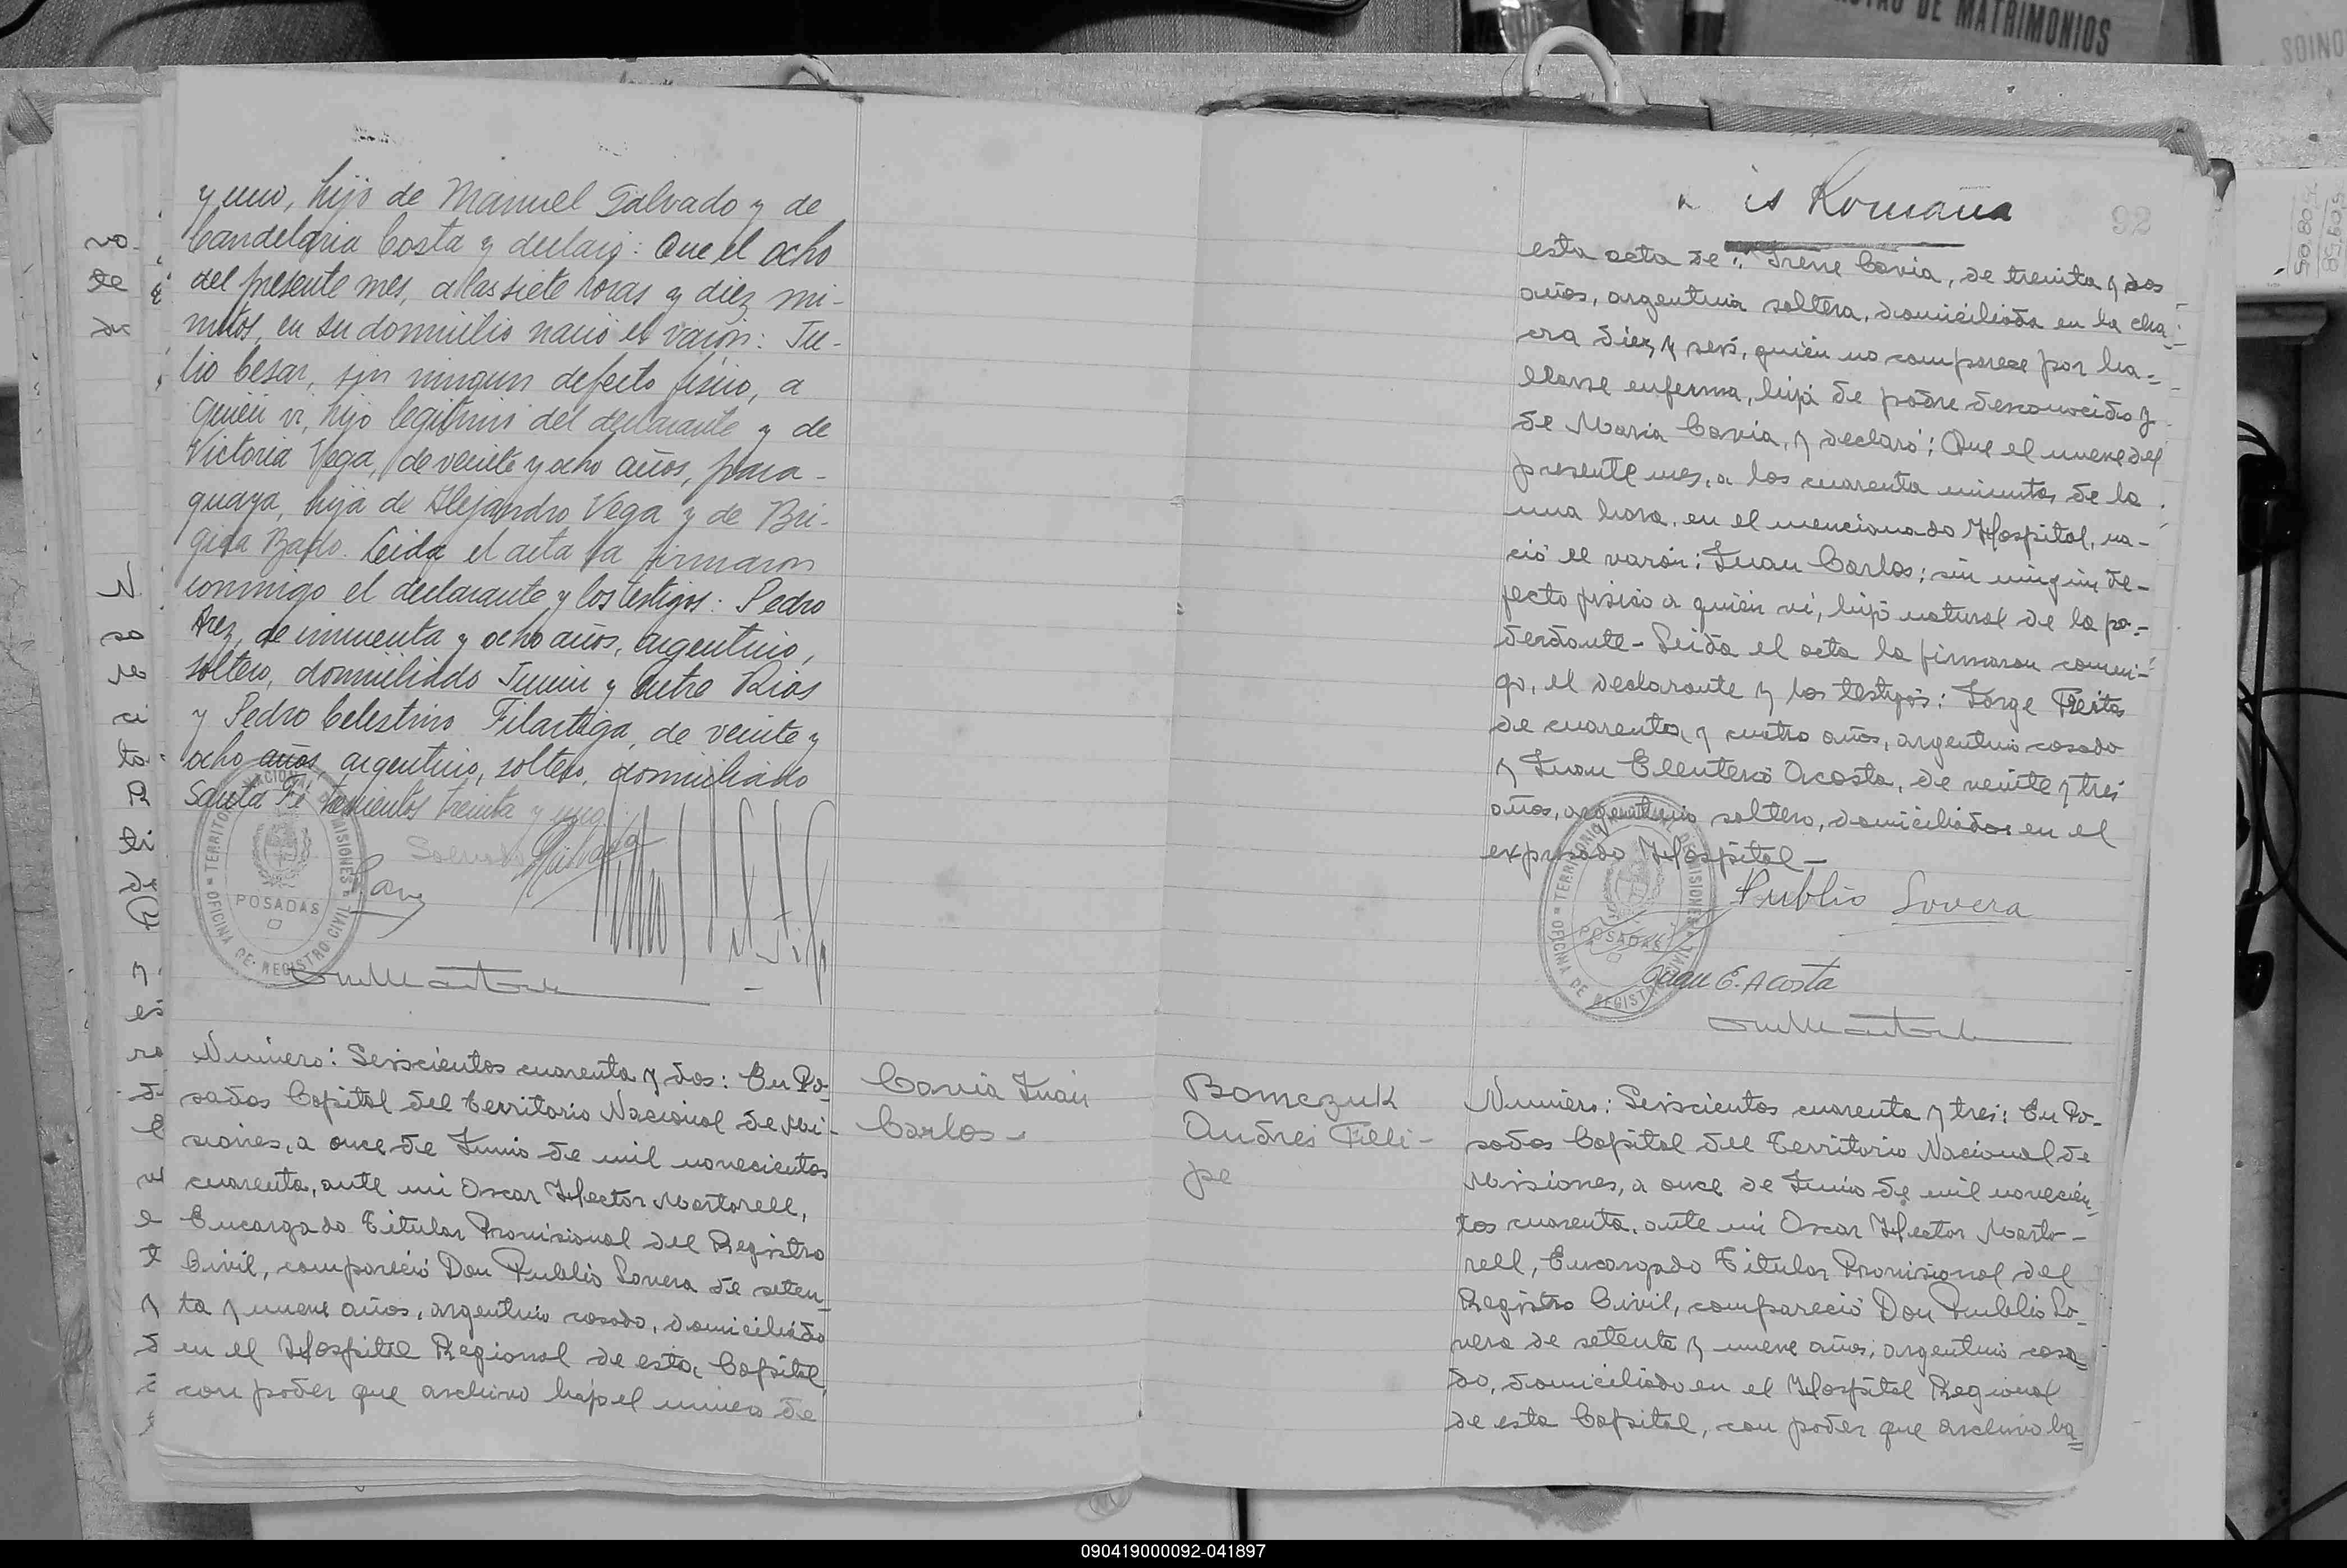 y uno, hijo de Manuel Salvado y de
Candelaria Costa y declaró: Que el ocho
del presente mes, a las siete horas y diez mi-
nutos, en su domicilio nació el varón: Ju-
lio Cesar, sin ningun defecto físico, a
quien vi, hijo legitimo del declarante y de
Victoria Vega, de veinte y ocho años, para-
guaya, hija de Alejandro Vega y de Bri-
gida Bado. Leida el acta la firmaron
conmigo el declarante y los testigos: Pedro
Arez, de cincuenta y ocho años, argentino,
soltero, domiciliado Junin y Entre Rios
y Pedro Celestino Filartiga, de veinte y
ocho años, argentino, soltero, domiciliado
Santa Fé trescientos treinta y uno.
TERRITORIO NACIONAL DE MISIONES
POSADAS
OFICINA DE REGISTRO CIVIL
Numero: Seiscientos cuarenta y dos: En Po-
sadas Capital del Territorio Nacional de Mi-
siones, a once de Junio de mil novecientos
cuarenta, ante mi Oscar Hector Martorell,
Encargado Titular Provisional del Registro
Civil, compareció Don Publio Lovera de seten-
ta y nueve años, argentino casado, domiciliado
en el Hospital Regional de esta Capital,
con poder que archivo bajo el numero de
Cavia Juan
Carlos-
is Romana
92
esta acta de: Irene Cavia, de treinta y dos
años, argentina soltera, domiciliada en la cha-
cra diez y seis, quién no comparece por ha-
llarse enferma, hija de padre desconocido y
de Maria Cavia, y declaró: Que el nueve del
presente mes, a los cuarenta minutos de la
una hora, en el mencionado Hospital, na-
ció el varón: Juan Carlos; sin ningún de-
fecto fisico a quién vi, hijo natural de la po-
derdante- Leida el acta la firmaron conmi-
go, el declarante y los testigos: Jorge Freitas
de cuarenta y cuatro años, argentino casado
y Juan Eleuterio Acosta, de veinte y tres
años, argentino soltero, domiciliados en el
expresado Hospital-
Publio Lovera
TERRITORIO NACIONAL DE MISIONES
POSADAS
OFICINA DE REGISTRO CIVIL
Juan E. Acosta
Bomczuk
Andres Feli-
pe
Numero: Seiscientos cuarenta y tres: En Po-
sadas Capital del Territorio Nacional de
Misiones, a once de Junio de mil novecien-
tos cuarenta, ante mi Oscar Hector Marto-
rell, Encargado Titular Provisional del
Registro Civil, compareció Don Publio Lo-
vera de setenta y nueve años; argentino casa-
do, domiciliado en el Hospital Regional
de esta Capital, con poder que archivo ba-
DE MATRIMONIOS
090419000092-041897